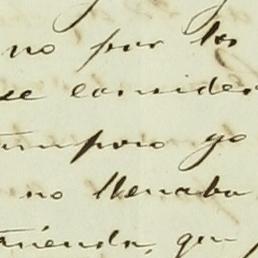 no por los
se consider
tampoco yo
no llenaba
tienda, que